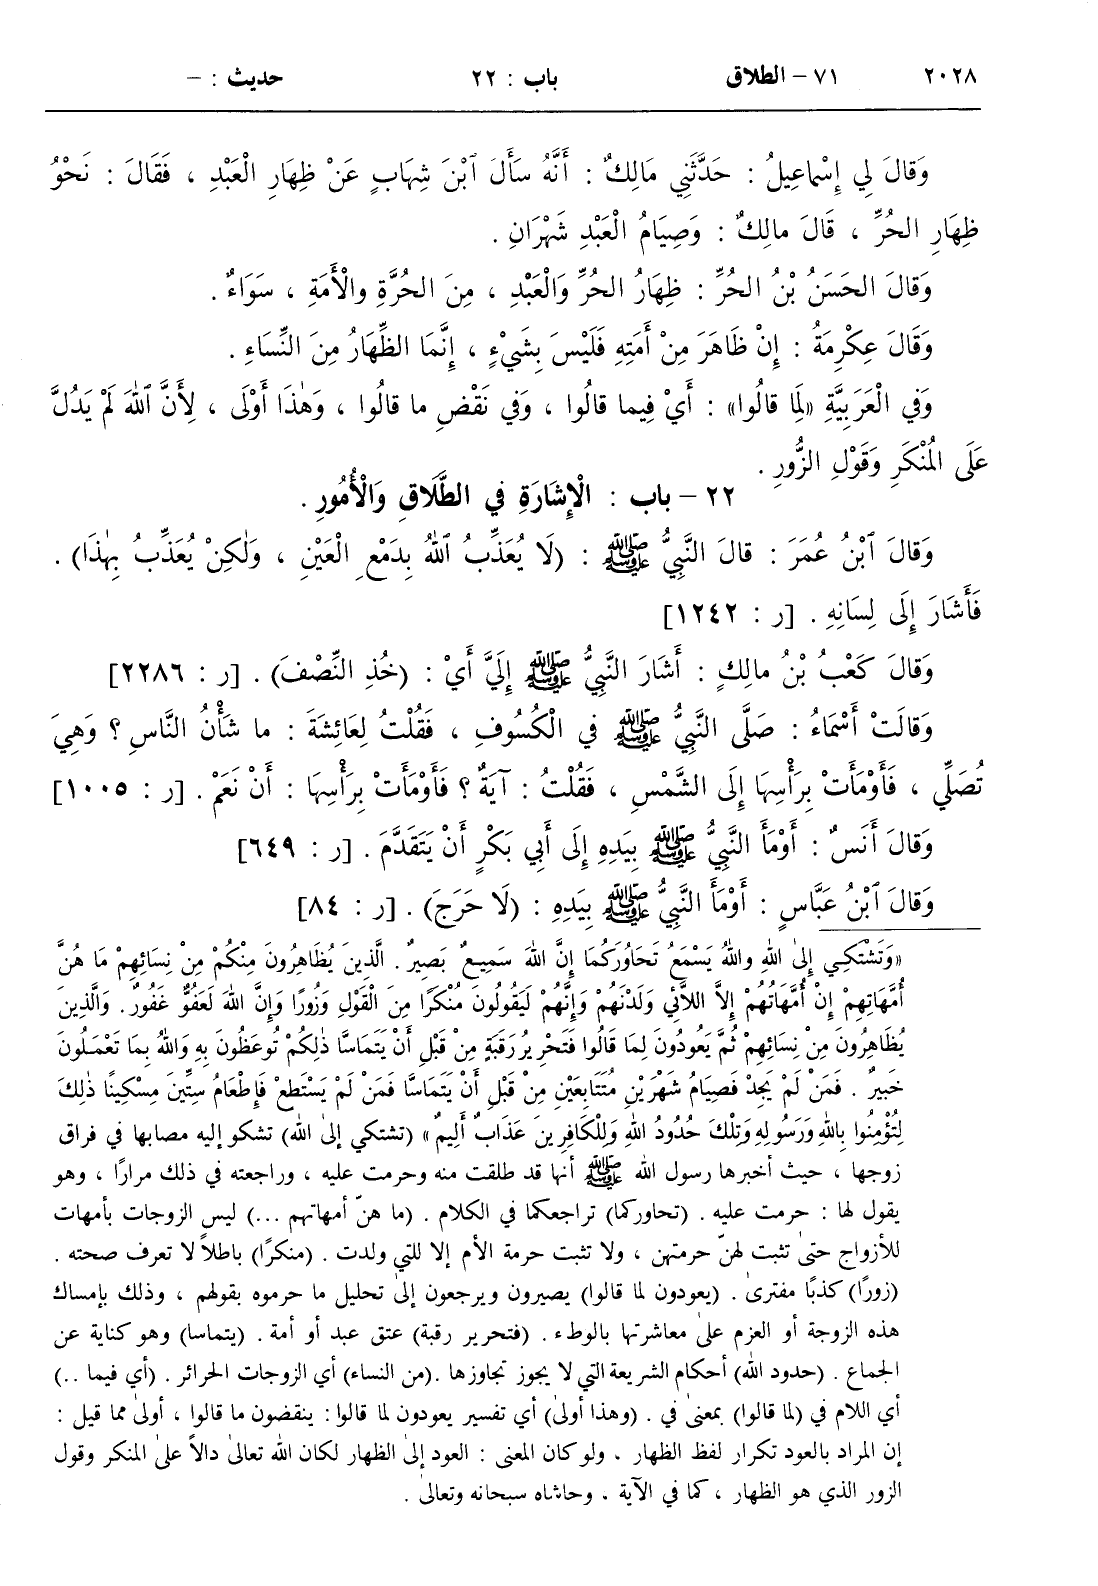 ٢٠٢٨ ٧١ – الطلاق باب : ٢٢ حديث : –
وَقالَ لِي إِسْماعِيلُ : حَدَّثَنِي مَالِكٌ : أَنَّهُ سَأَلَ ٱبْنَ شِهَابٍ عَنْ ظِهَارِ الْعَبْدِ ، فَقَالَ : نَحْوُ
ظِهَارِ الحُرِّ ، قَالَ مالِكٌ : وَصِيَامُ الْعَبْدِ شَهْرَانِ .
وَقَالَ الحَسَنُ بْنُ الحُرِّ : ظِهَارُ الحُرِّ وَالْعَبْدِ ، مِنَ الحُرَّةِ والْأَمَةِ ، سَوَاءٌ .
وَقَالَ عِكْرِمَةُ : إِنْ ظَاهَرَ مِنْ أَمَتِهِ فَلَيْسَ بِشَيْءٍ ، إِنَّمَا الظِّهَارُ مِنَ النِّسَاءِ .
وَفي الْعَرَبِيَّةِ «لِمَا قالُوا» : أَيْ فِيما قالُوا ، وَفي نَقْضِ ما قالُوا ، وَهٰذَا أَوْلَى ، لِأَنَّ ٱللهَ لَمْ يَدُلَّ
عَلَى المُنْكَرِ وَقَوْلِ الزُّورِ .
٢٢ – باب : الْإِشَارَةِ في الطَّلَاقِ وَالْأُمُورِ .
وَقالَ ٱبْنُ عُمَرَ : قالَ النَّبِيُّ ﷺ : (لَا يُعَذِّبُ ٱللهُ بِدَمْعِ الْعَيْنِ ، وَلٰكِنْ يُعَذِّبُ بِهٰذَا) .
فَأَشَارَ إِلَى لِسَانِهِ . [ر : ١٢٤٢]
وَقالَ كَعْبُ بْنُ مالِكٍ : أَشَارَ النَّبِيُّ ﷺ إِلَيَّ أَيْ : (خُذِ النِّصْفَ) . [ر : ٢٢٨٦]
وَقالَتْ أَسْمَاءُ : صَلَّى النَّبِيُّ ﷺ في الْكُسُوفِ ، فَقُلْتُ لِعَائِشَةَ : ما شَأْنُ النَّاسِ ؟ وَهِيَ
تُصَلِّي ، فَأَوْمَأَتْ بِرَأْسِهَا إِلَى الشَّمْسِ ، فَقُلْتُ : آيَةٌ ؟ فَأَوْمَأَتْ بِرَأْسِهَا : أَنْ نَعَمْ . [ر : ١٠٠٥]
وَقالَ أَنَسٌ : أَوْمَأَ النَّبِيُّ ﷺ بِيَدِهِ إِلَى أَبِي بَكْرٍ أَنْ يَتَقَدَّمَ . [ر : ٦٤٩]
وَقالَ ٱبْنُ عَبَّاسٍ : أَوْمَأَ النَّبِيُّ ﷺ بِيَدِهِ : (لَا حَرَجَ) . [ر : ٨٤]
«وَتَشْتَكِي إِلىٰ اللهِ واللهُ يَسْمَعُ تَحَاوُرَكُمَا إِنَّ اللهَ سَمِيعٌ بَصِيرٌ . الَّذِينَ يُظَاهِرُونَ مِنْكُمْ مِنْ نِسَائِهِمْ مَا هُنَّ
أُمَّهَاتِهِمْ إِنْ أُمَّهَاتُهُمْ إِلاَّ اللاَّئِي وَلَدْنَهُمْ وَإِنَّهُمْ لَيَقُولُونَ مُنْكَرًا مِنَ الْقَوْلِ وَزُورًا وَإِنَّ اللهَ لَعَفُوٌّ غَفُورٌ . وَالَّذِينَ
يُظَاهِرُونَ مِنْ نِسَائِهِمْ ثُمَّ يَعُودُونَ لِمَا قَالُوا فَتَحْرِيرُ رَقَبَةٍ مِنْ قَبْلِ أَنْ يَتَمَاسَّا ذٰلِكُمْ تُوعَظُونَ بِهِ وَاللهُ بِمَا تَعْمَلُونَ
خَبِيرٌ . فَمَنْ لَمْ يَجِدْ فَصِيَامُ شَهْرَيْنِ مُتَتَابِعَيْنِ مِنْ قَبْلِ أَنْ يَتَمَاسَّا فَمَنْ لَمْ يَسْتَطِعْ فَإِطْعَامُ سِتِّينَ مِسْكِينًا ذٰلِكَ
لِتُؤْمِنُوا بِاللهِ وَرَسُولِهِ وَتِلْكَ حُدُودُ اللهِ وَلِلْكَافِرِينَ عَذَابٌ أَلِيمٌ» (تشتكي إلىٰ الله) تشكو إليه مصابها في فراق
زوجها ، حيث أخبرها رسول الله ﷺ أنها قد طلقت منه وحرمت عليه ، وراجعته في ذلك مرارًا ، وهو
يقول لها : حرمت عليه . (تحاوركما) تراجعكما في الكلام . (ما هنّ أمهاتهم ...) ليس الزوجات بأمهات
للأزواج حتىٰ تثبت لهنّ حرمتهن ، ولا تثبت حرمة الأم إلا للتي ولدت . (منكرًا) باطلاً لا تعرف صحته .
(زورًا) كذبًا مفترىٰ . (يعودون لما قالوا) يصيرون ويرجعون إلىٰ تحليل ما حرموه بقولهم ، وذلك بإمساك
هذه الزوجة أو العزم علىٰ معاشرتها بالوطء . (فتحرير رقبة) عتق عبد أو أمة . (يتماسا) وهو كناية عن
الجماع . (حدود الله) أحكام الشريعة التي لا يجوز تجاوزها . (من النساء) أي الزوجات الحرائر . (أي فيما ..)
أي اللام في (لما قالوا) بمعنىٰ في . (وهذا أولىٰ) أي تفسير يعودون لما قالوا : ينقضون ما قالوا ، أولىٰ مما قيل :
إن المراد بالعود تكرار لفظ الظهار ، ولو كان المعنى : العود إلىٰ الظهار لكان الله تعالىٰ دالاً علىٰ المنكر وقول
الزور الذي هو الظهار ، كما في الآية ، وحاشاه سبحانه وتعالىٰ .